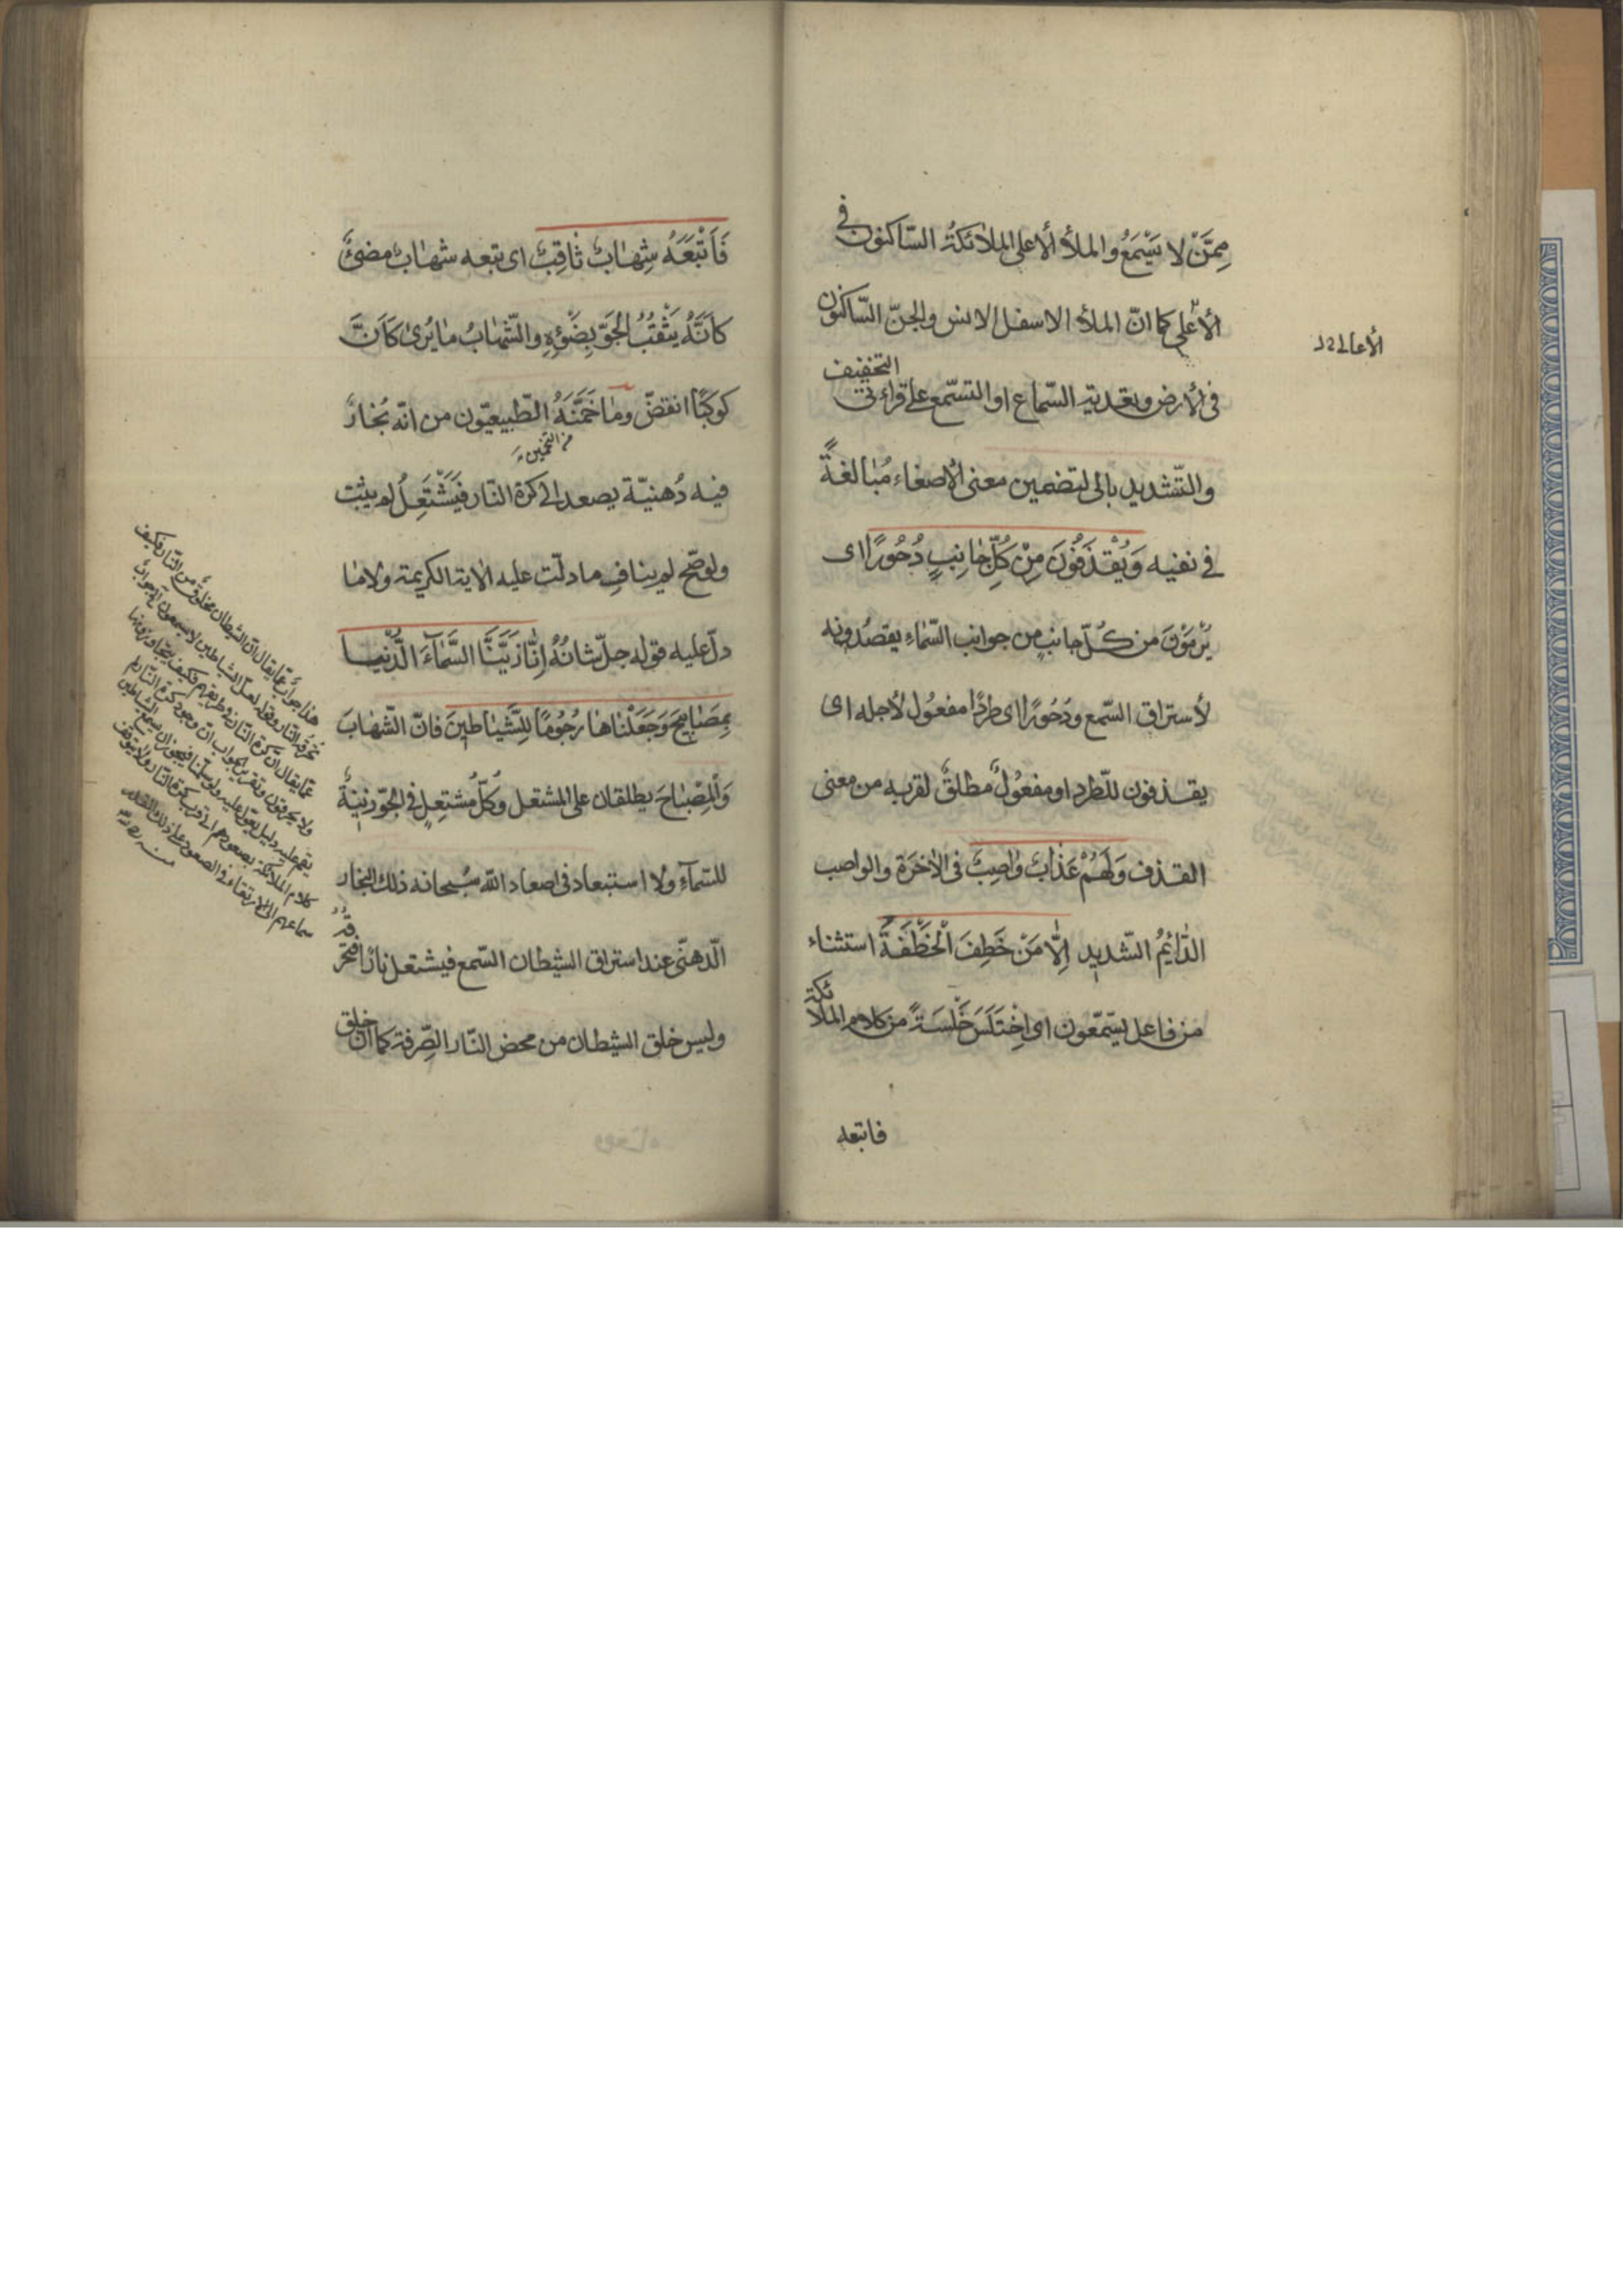 مِمَّنْ لا يَسْمَعُ والملأ ألأعلى الملائكة السّاكنون في
ألأعلى كما انّ الملأ الاسفل الانس والجنّ السّاكنون
الأعالى
في لأرض وبتعدية السّماع او التسّمع على قراءتي
التخفيف
والتّشديد بالى لتضمين معنى الاصغاء مُبٰالغةً
في نفيه وَيُقْذَفُونَ مِنْ كُلِّ جٰانِبٍ دُحُورًا اى
يُرْمَوْنَ من كُلّ جانبٍ من جوانب السّماءِ يقصدونه
لأستراق السّمع ودُحُورًا اى طردًا مفعُول لأجله اى
يقذفون للطّرد او مفعُولٌ مطلقٌ لقربه من معنى
القذف وَلَهُمْ عَذٰابٌ وٰاصِبٌ في الأخرَة والواصب
الدّٰائِمُ الشّديد اِلّٰا مَنْ خَطِفَ اَلْخَطْفَةَ استثناء
من فاعل يسّمّعون اى اِخْتَلَسَ خَلْسَةً من كلام الملائكة
فاتبعه
فَاَتْبَعَهُ شِهٰابٌ ثٰاقِبٌ اى تبعه شهٰابٌ مضئٌ
كَاَنَّهُ يَثْقُبُ الجَوّ بِضَوْئِهِ والشّهٰابُ مٰا يُرىٰ كَاَنَّ
كوكبًا انقضّ ومٰا خَمَّنَهُ الطّبيعيّون من انّه بُخارٌ
من التخمين
فيه دُهنيّة يصعد الى كرة النّار فَيَشْتَعِلُ لم يثبت
ولو صَحّ لم ينافِ ما دلّت عليه الاية الكريمة ولا مٰا
دلّ عليه قوله جلّ شانُهُ اِنّٰا زَيَّنَّا السَّمٰآءَ الدُّنْيٰا
بِمَصٰابِيحَ وَجَعَلْنٰاهٰا رُجُومًا لِلشَّيٰاطِينَ فانّ الشّهٰابَ
وَالمِصْبٰاحَ يطلقان على المشتعل وَكُلُّ مُشتعِلٍ في الجَوّ زينةٌ
للسّمآءِ ولا استبعاد في اصعاد اللّه سُبحانه ذلك البخار
الدّهنىّ عند استراق الشيطان السّمع فيشتعل نارًا فتحرقه
وليس خلق الشيطان من محض النّار الصِّرفة كما انّ خلق
هذا جوابٌ عمّا يقال انّ الشيطان مخلوقٌ من النّار فكيف
تُحرقُه النّار وقوله لعلّ الشياطين لا يسمعون الخ جوابٌ
عمّا يقال انّ كرة النّار في طريقهم فكيف يتجاوزونها
ولا يحرقون وتقرير الجواب انّ وجود كرة النّار لم
يقم عليه دليل يعوّل عليه ولو سلّمنا فيجوز ان يسمع الشياطين
كلام الملائكة بصعودهم الى قرب كرة النّار ولا يتوقف
سماعهم الى الارتقاء في الصعود على ذلك القدر
منه ره